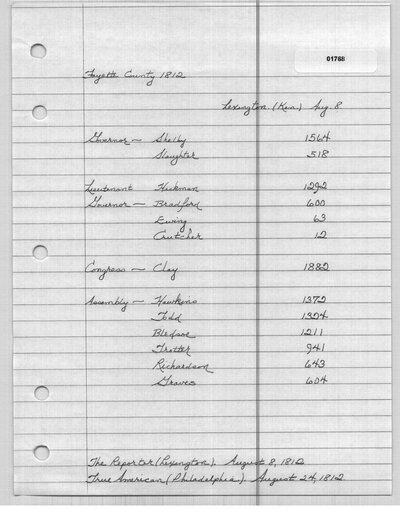 01768
Fayette County 1812
Lexington. (Ken.) Aug. 8.
Governor — Shelby 1564
Slaughter 518
Lieutenant Hickman 1292
Governor — Bradford 600
Ewing 63
Crutcher 12
Congress — Clay 1882
Assembly — Hawkins 1372
Todd 1324
Bledsoe 1211
Trotter 941
Richardson 643
Graves 604
The Reporter (Lexington). August 8, 1812
True American (Philadelphia). August 24, 1812